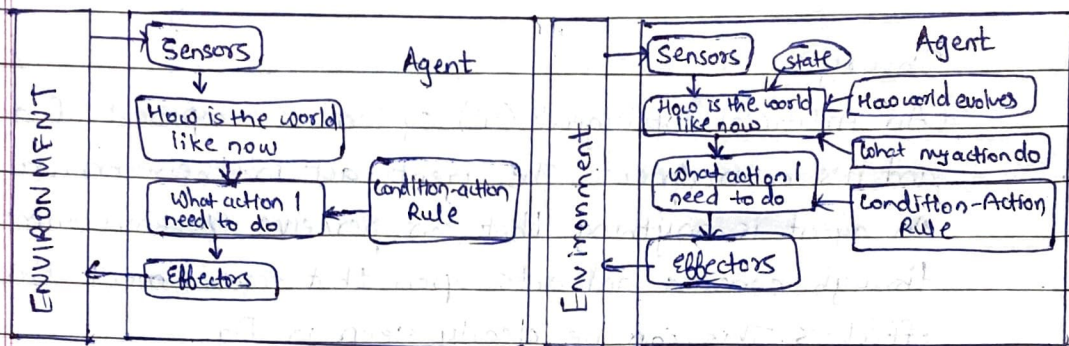 ENVIRONMENT
Sensors
Agent
How is the world
like now
What action I
need to do
Condition-action
Rule
Effectors
Environment
Sensors
State
Agent
How is the world
like now
How world evolves
What my action do
What action I
need to do
Condition-Action
Rule
Effectors